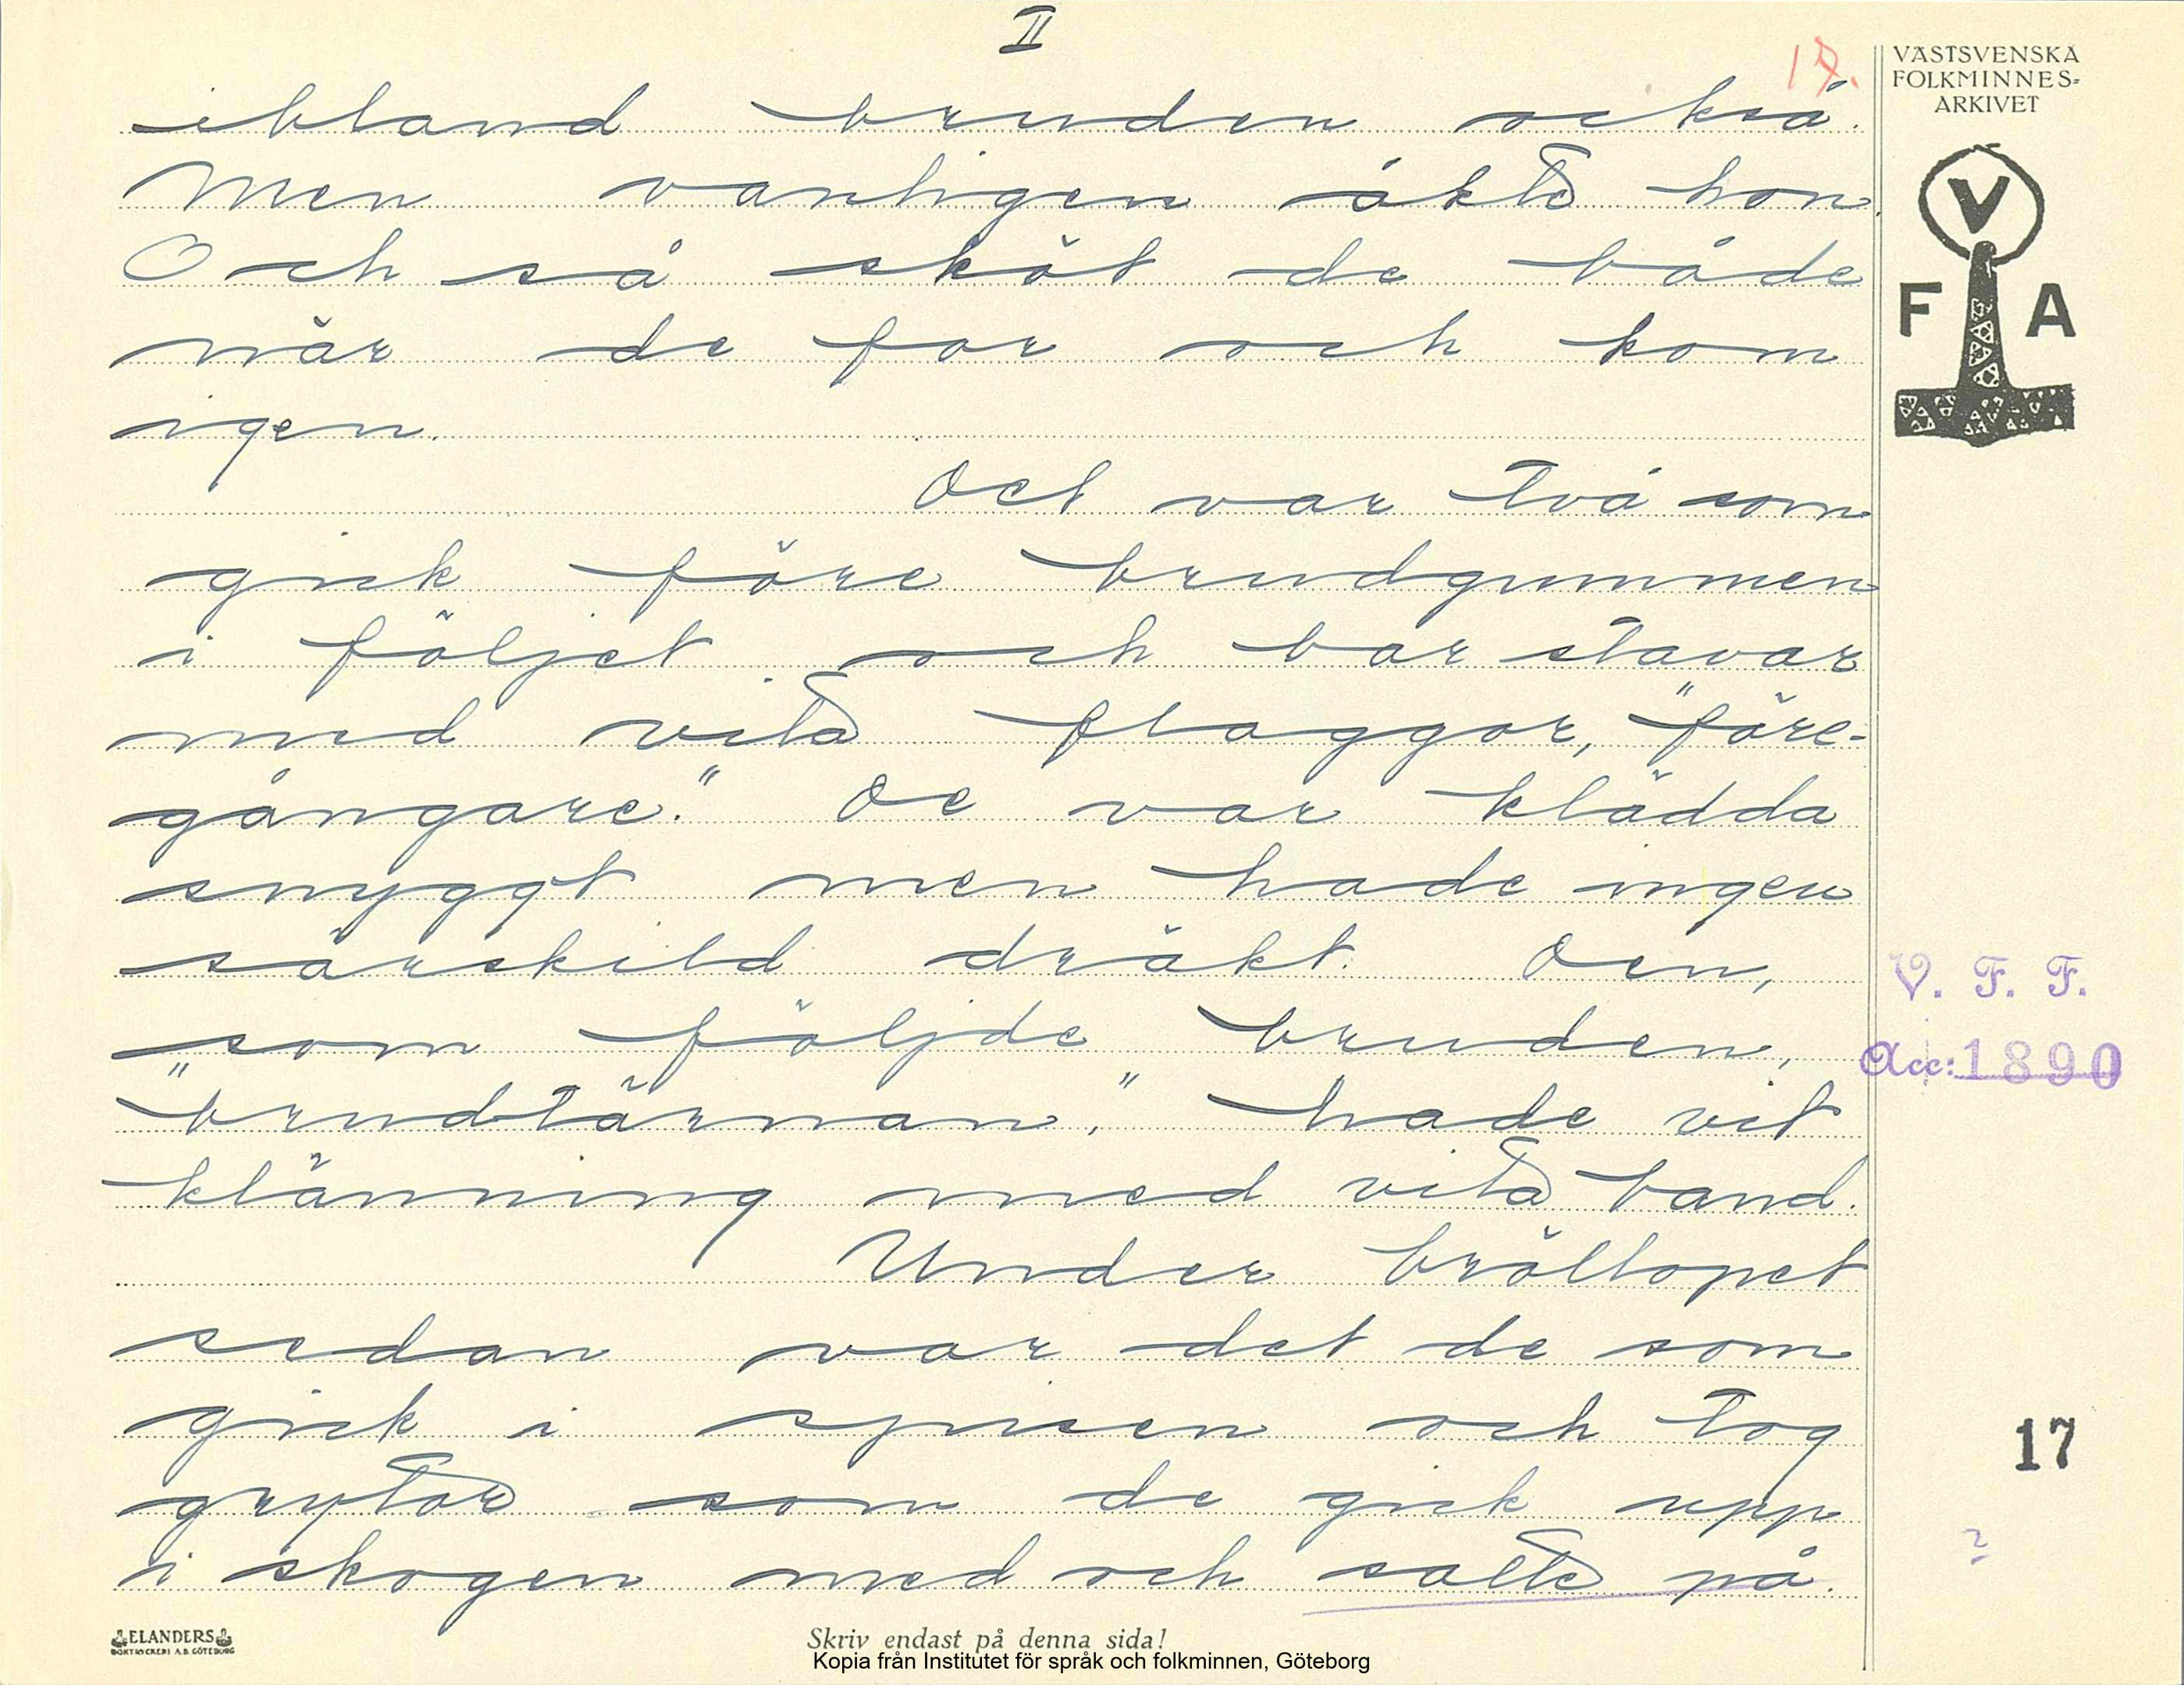 II
17.
ibland bruden också.
Men vanligen åkte hon.
Och så sköt de både
när de for och kom
igen.
Det var två som
gick före brudgummen
i följet och bar stavar
med vita flaggor, "före-
gångare." De var klädda
snyggt men hade ingen
särskild dräkt. Den,
som följde bruden,
"brudtärnan," hade vit
klänning med vita band.
Under bröllopet
sedan var det de som
gick i spisen och tog
grytor som de gick upp
i skogen med och satte på.
VÄSTSVENSKA
FOLKMINNES-
ARKIVET
V
F A
V. F. F.
Acc: 1890
17
?
ELANDERS
BOKTRYCKERI A.B. GÖTEBORG
Skriv endast på denna sida!
Kopia från Institutet för språk och folkminnen, Göteborg